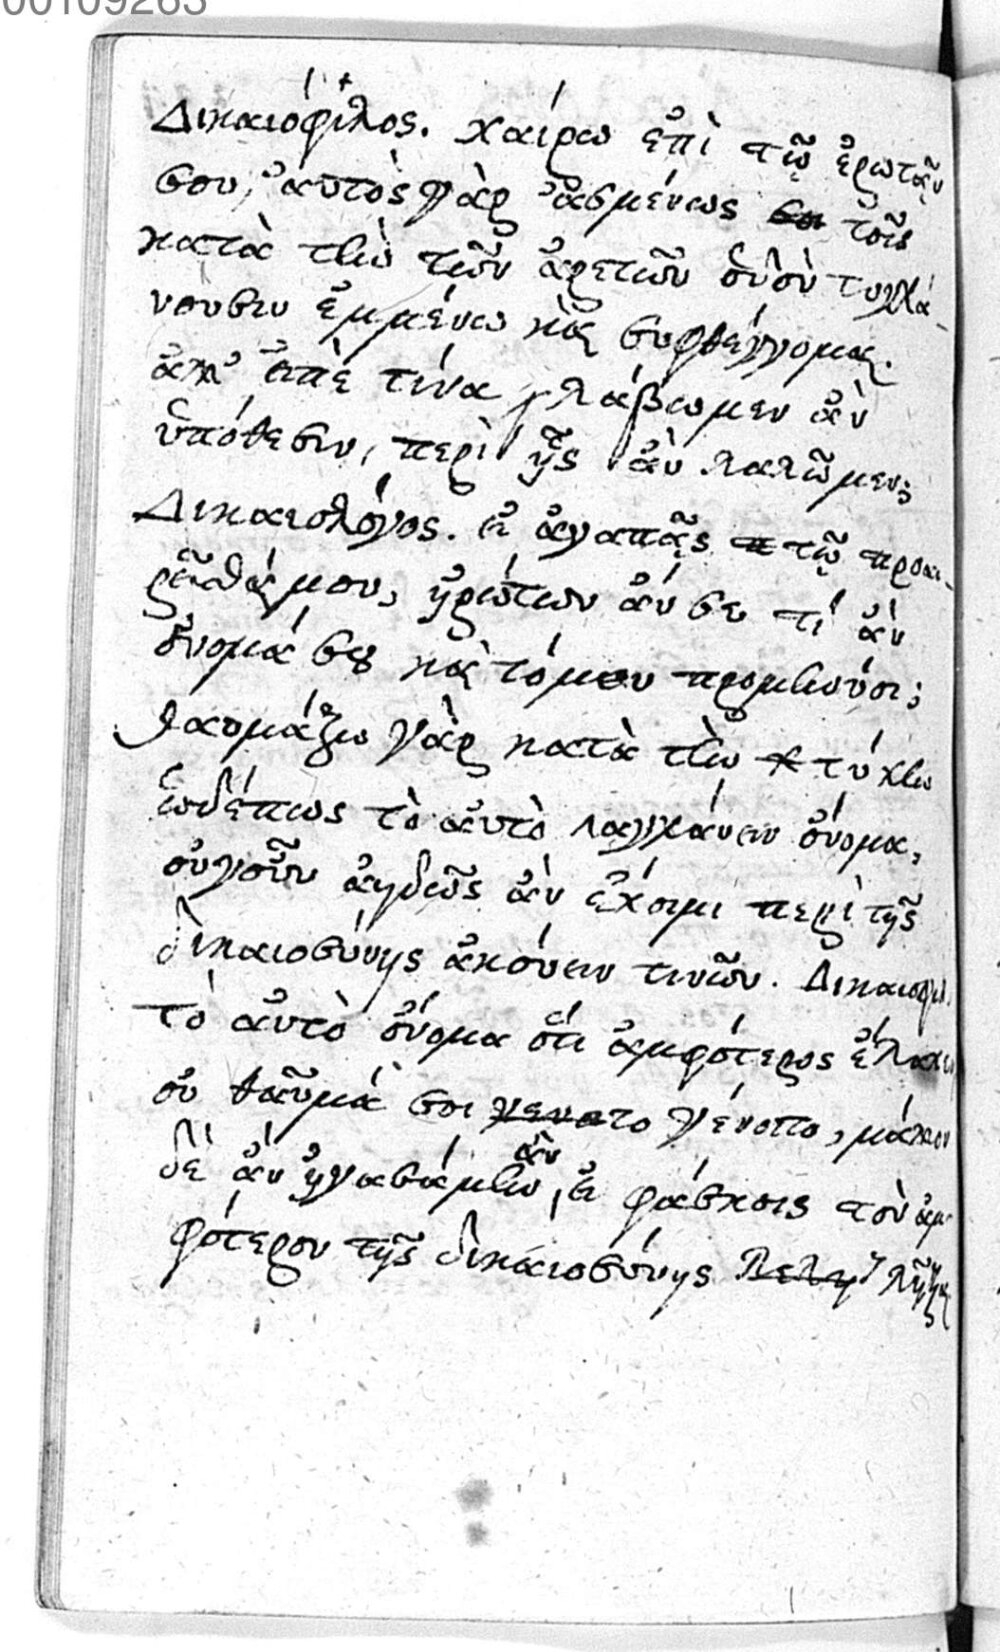 00109263
Δικαιόφιλος. χαίρω ἐπὶ τῷ ἐρωτᾶν
σου, αὐτὸς γὰρ ἀσμένως τοῖς
κατὰ τὴν τῶν ἀρετῶν ὁδὸν τυγχά-
νουσιν ἐμμένω καὶ συμφθέγγομαι.
ἀλλ' εἰπὲ τίνα λάβωμεν ἂν
ὑπόθεσιν, περὶ ἧς ἂν λαλῶμεν;
Δικαιολόγος. εἰ ἀγαπᾷς τῷ προσαι-
ρεῖσθαί μου, ἠρώτων ἄν σε τί ἂν
ὄνομά σου καὶ τόμον προμηνύοι;
θαυμάζω γὰρ κατὰ τὴν τύχην
τὸ αὐτὸ λαγχάνειν ὄνομα,
οὐγοῦν ἀηδῶς ἂν ἔχοιμι περὶ τῆς
δικαιοσύνης ἀκούειν τινῶν. Δικαιοφιλ.
τὸ αὐτὸ ὄνομα ὅτι ἀμφότερος
οὐ θαῦμά σοι γένοιτο, μᾶλλον
δὲ ἂν ἠγασάμην ἂν, εἰ φάσκοις τὸν ἀμ-
φότερον τῆς δικαιοσύνης